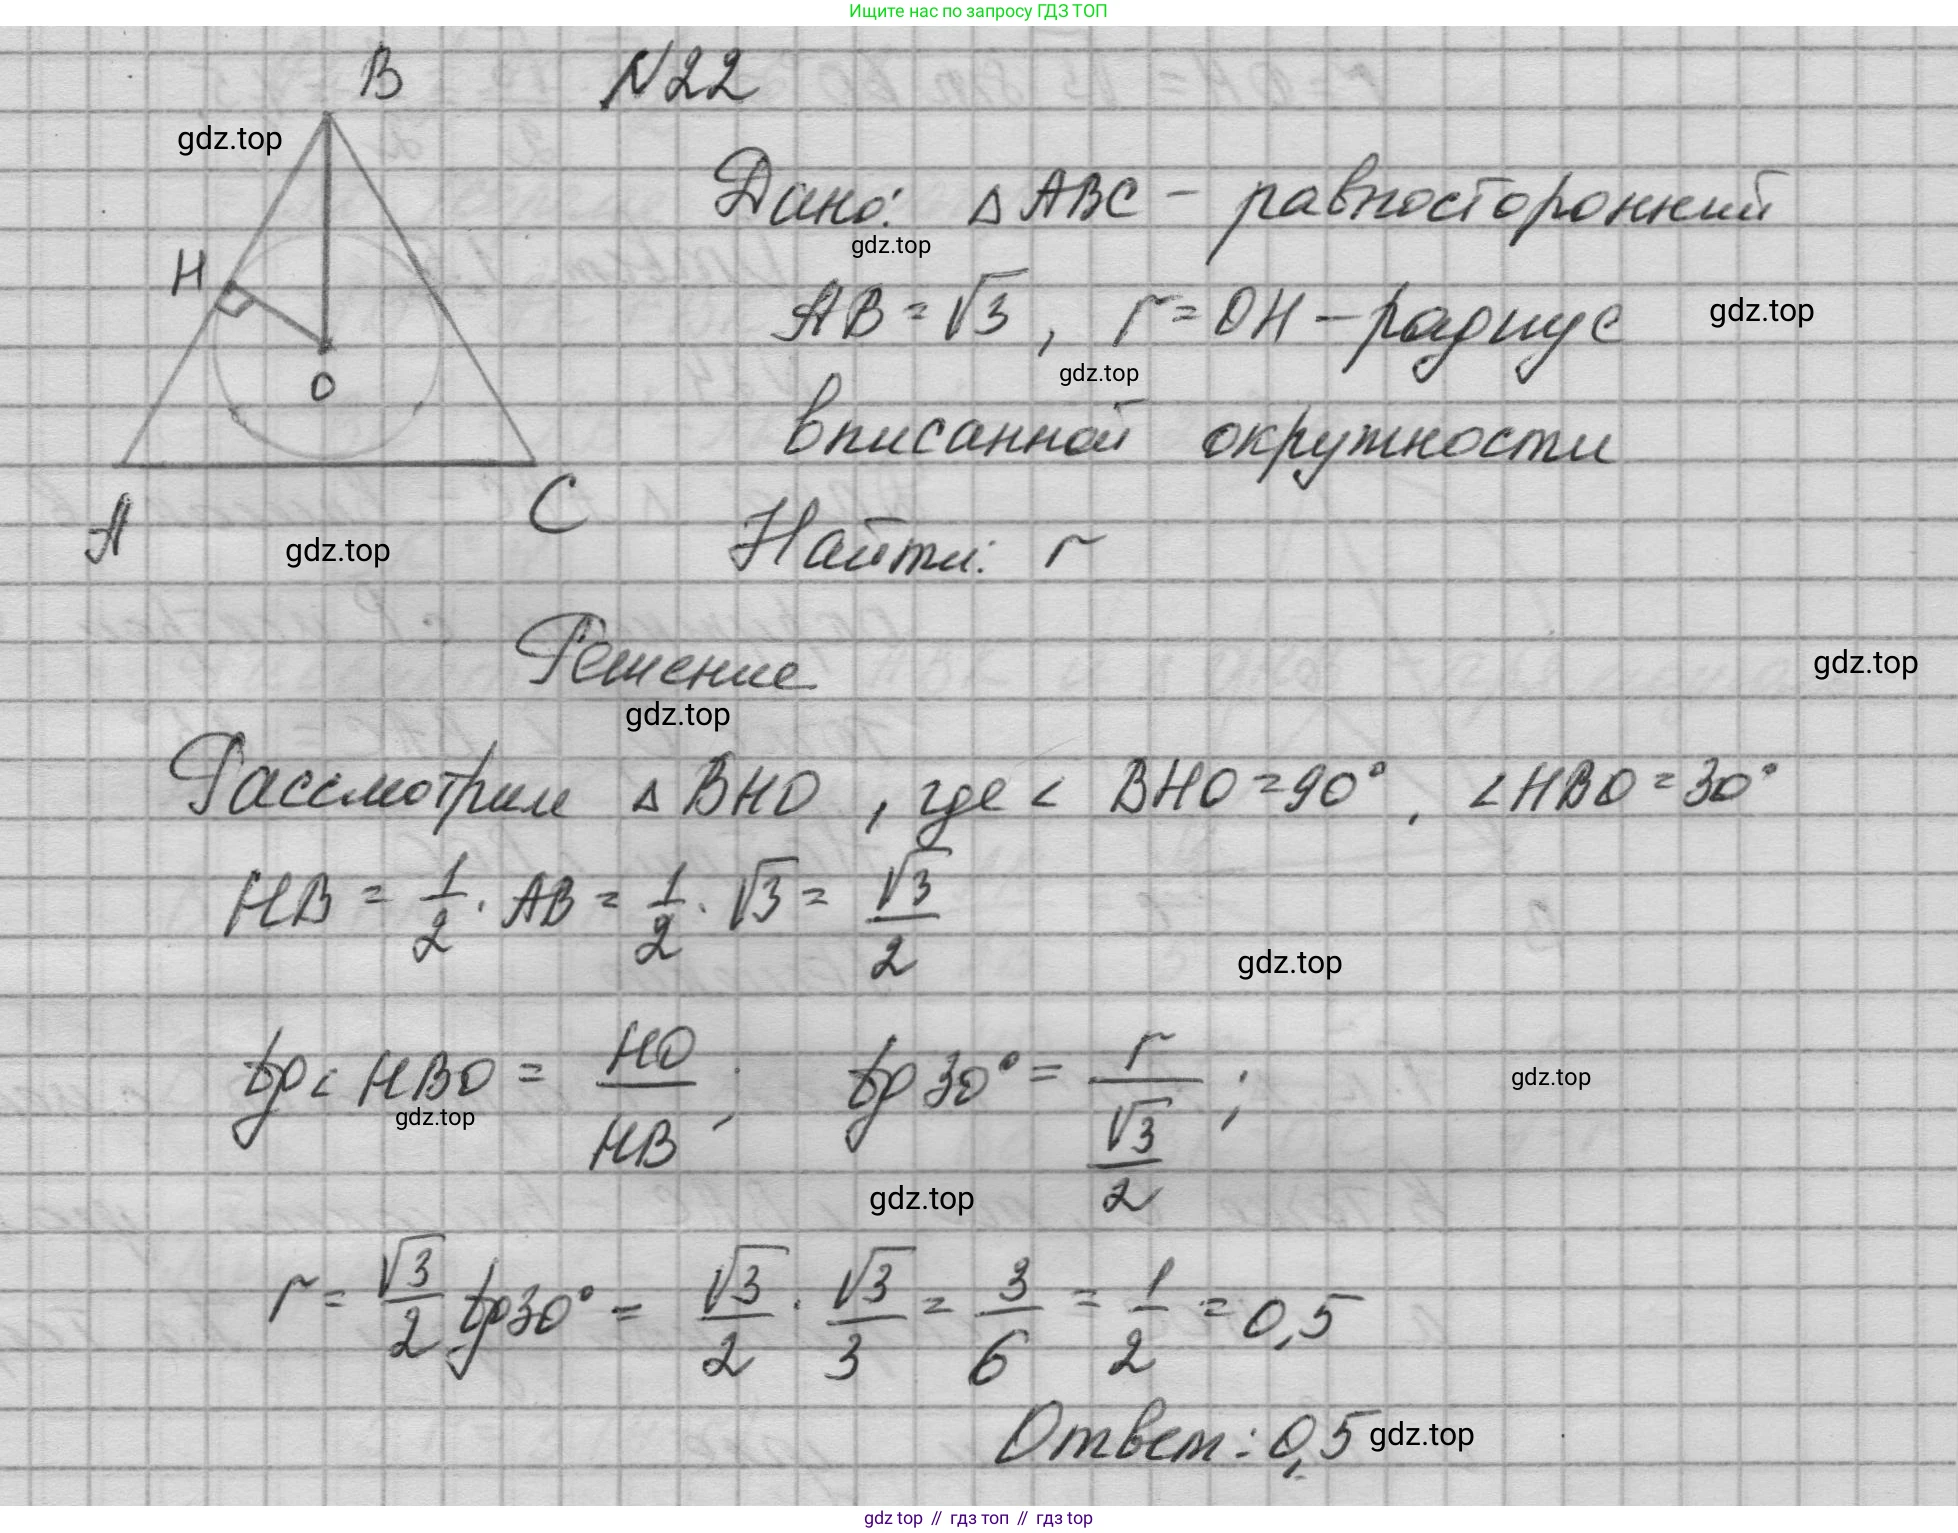 Ищите нас по запросу ГДЗ ТОП
B
N22
gdz.top
Дано: △ ABC - равносторонний
gdz.top
H
AB = √3, r = OH - радиус
gdz.top
gdz.top
O
вписанной окружности
A
C
gdz.top
Найти: r
Решение
gdz.top
gdz.top
Рассмотрим △ BHO, где ∠ BHO = 90°, ∠HBO = 30°
HB = 1/2 · AB = 1/2 · √3 = √3/2
gdz.top
tg∠ HBO = HO/HB; tg 30° = r/(√3/2);
gdz.top
gdz.top
gdz.top
r = √3/2 tg30° = √3/2 · √3/3 = 3/6 = 1/2 = 0,5
Ответ: 0,5
gdz.top
gdz top // гдз топ // гдз top